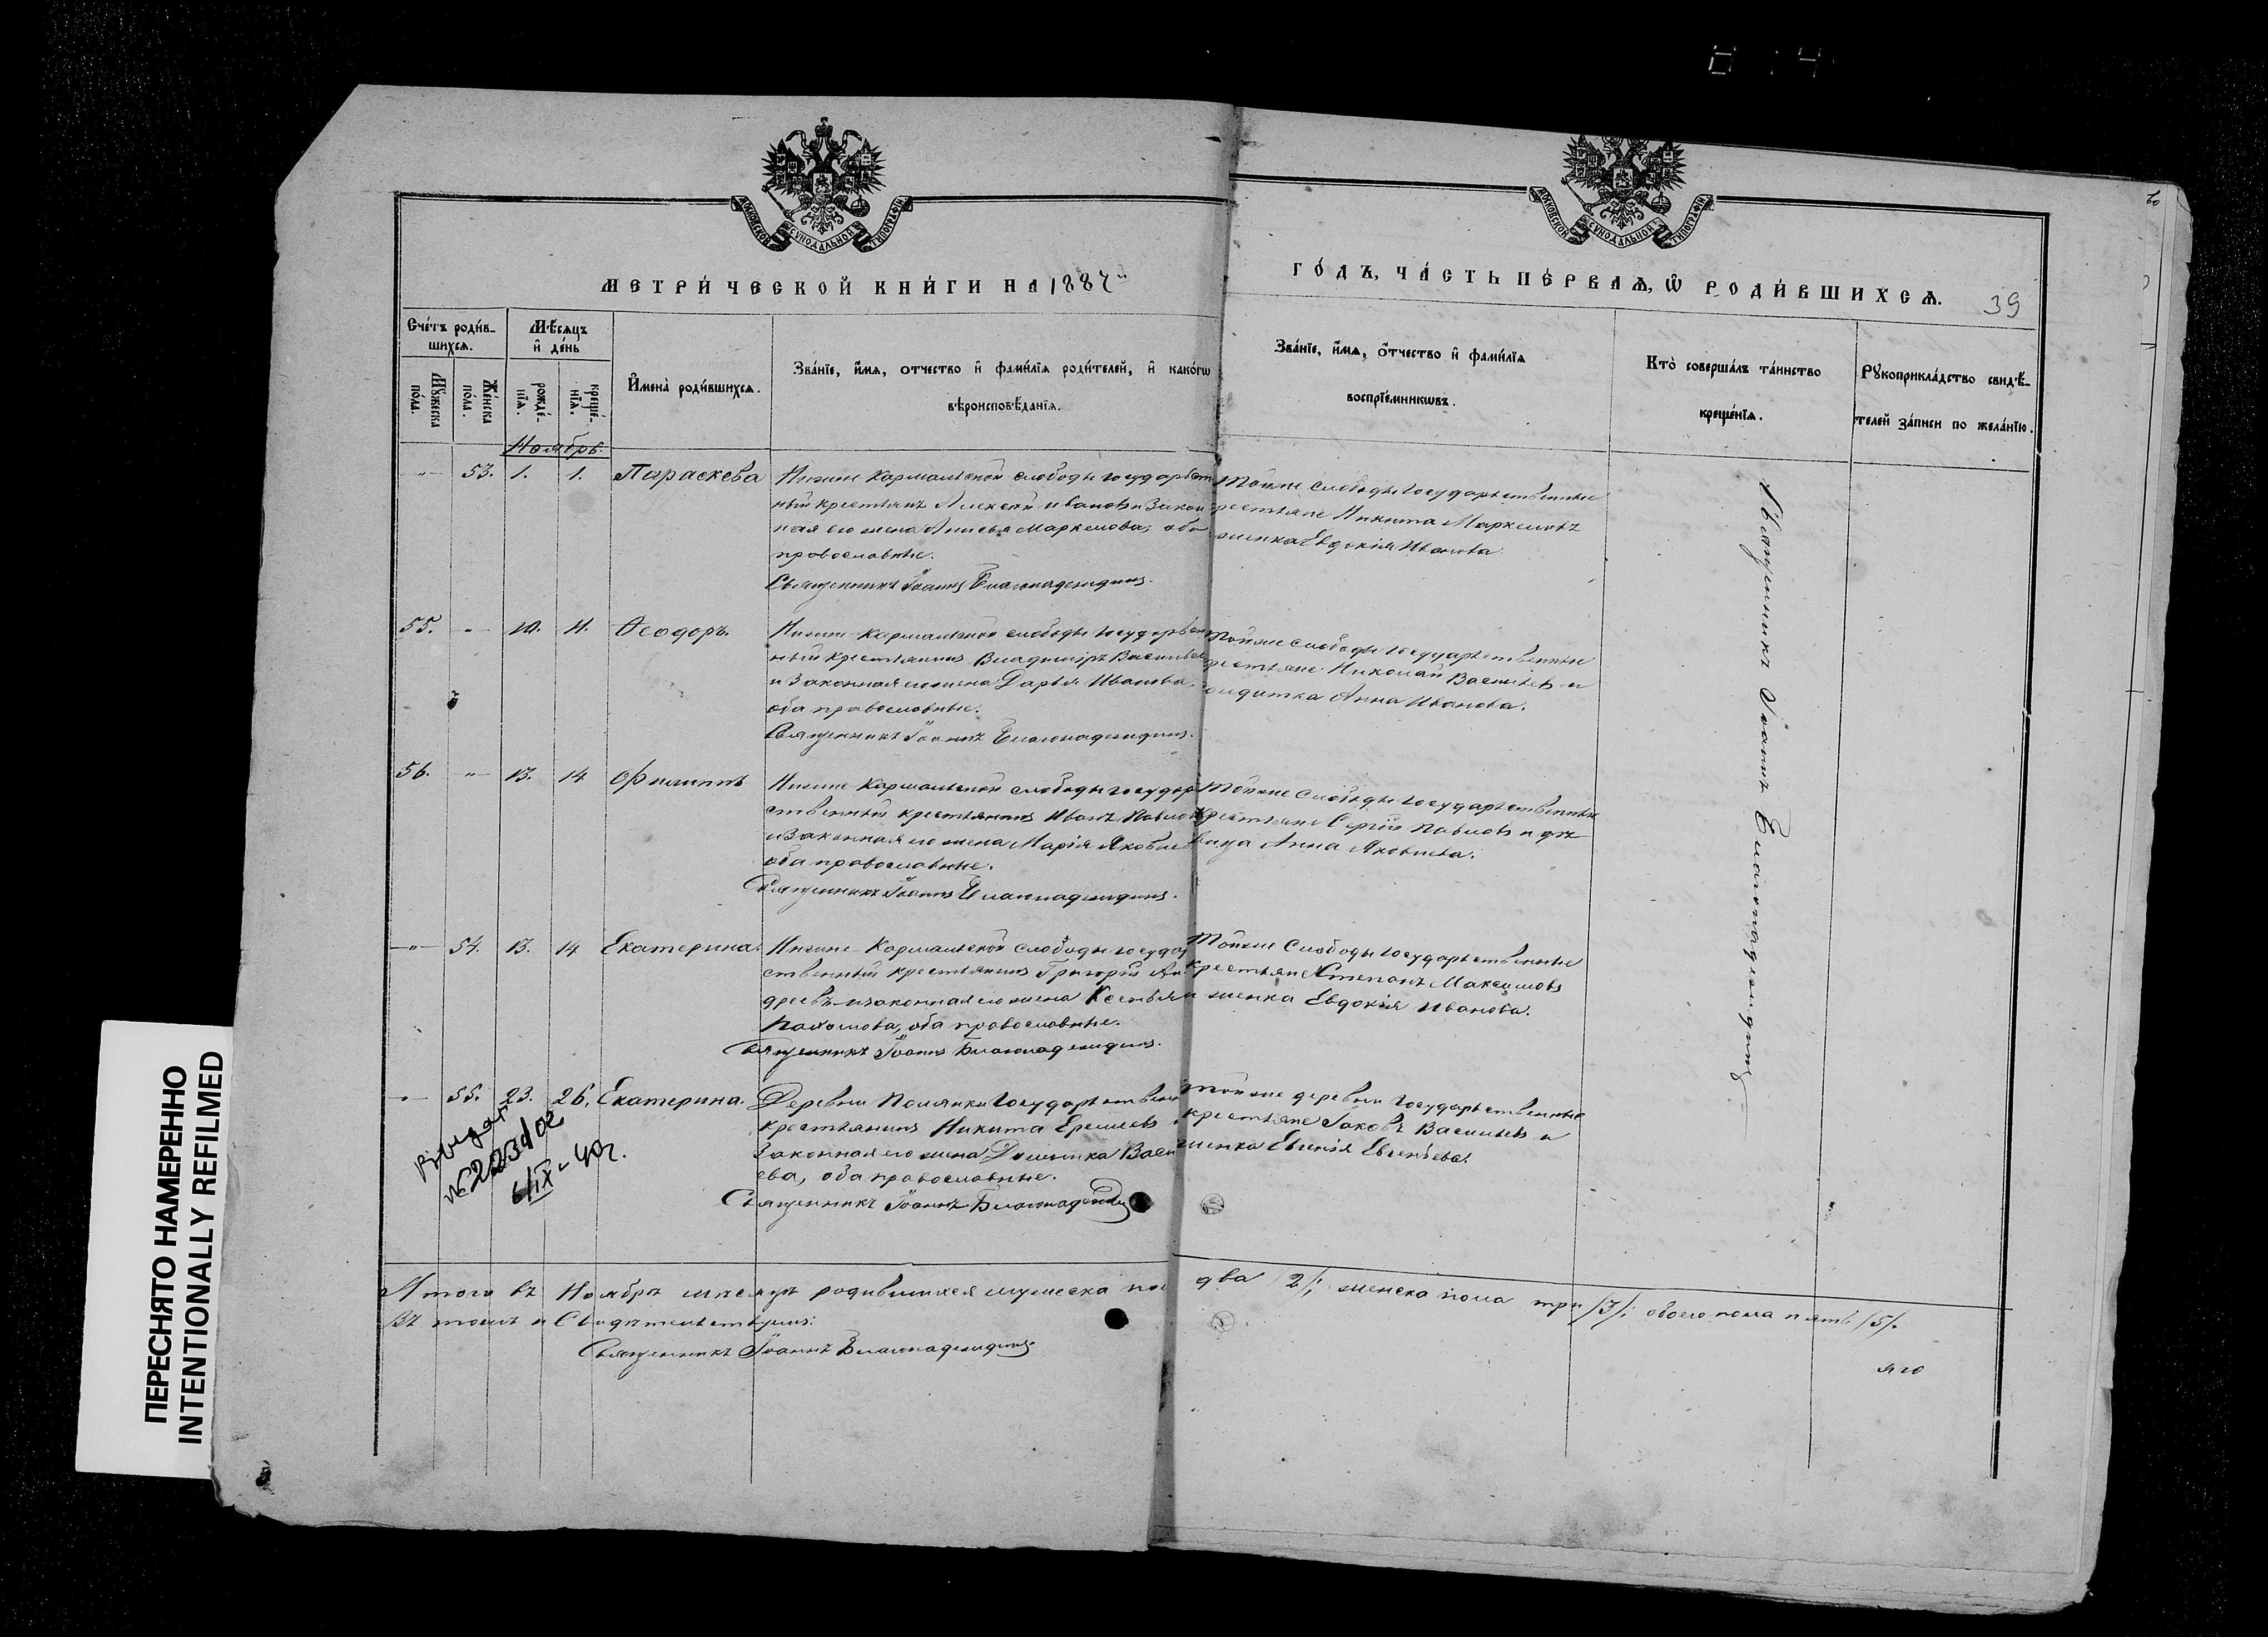 МОСКОВСКОЙ СѴНОДАЛЬНОЙ ТИПОГРАФІИ
МОСКОВСКОЙ СѴНОДАЛЬНОЙ ТИПОГРАФІИ
МЕТРИ́ЧЕСКОЙ КНИ́ГИ НА 1887й
ГО́ДЪ, ЧА́СТЬ ПЕ́РВАѦ, Ѡ҆ РОДИ́ВШИХСѦ.
39
Сче́тъ роди́в-
шихсѧ.
Мꙋ́жеска
по́ла.
Же́нска
по́ла.
Мѣ́сѧцъ
и҆ де́нь
рожде́-
нїѧ.
креще́-
нїѧ.
И҆мена̀ роди́вшихсѧ.
Зва́нїе, и҆́мѧ, ѻ҆́тчество и҆ фами́лїѧ роди́телей, и҆ како́гѡ
вѣроисповѣ́данїѧ.
Зва́нїе, и҆́мѧ, ѻ҆́тчество и҆ фами́лїѧ
воспрїе́мникѡвъ.
Кто̀ соверша́лъ та́инство
креще́нїѧ.
Рꙋкоприкла́дство свидѣ́-
телей за́писи по жела́нїю.
Ноябрь.
-"- 53. 1. 1. Параскева
Нижне Кормальской слободы государст
ный крестьянъ Алексѣй Ивановъ и закон
ная его жена Анисья Маркелова, оба
православные.
Священникъ Іоаннъ Благонадеждинъ.
Тойже слободы государственные
крестьяне Никита Маркеловъ
женка Евдокія Иванова.
Священникъ Іоаннъ Благонадеждинъ
55. -"- 10. 11. Ѳеодоръ.
Нижне-Кормальской слободы государствен
ный крестьянинъ Владиміръ Васильев
и законная его жена Дарья Иванова
оба православные.
Священникъ Іоаннъ Благонадеждинъ.
Тойже слободы государственные
крестьяне Николай Васильевъ и
солдатка Анна Иванова.
56. -"- 13. 14 Филиппъ
Нижне Кормальской слободы государ
ственный крестьянинъ Иванъ Павлов
и законная его жена Марія Яковлев
оба православные.
Священникъ Іоаннъ Благонадеждинъ.
Тойже слободы государственные
крестьяне Сергѣй Павловъ и дѣ
вица Анна Яковлева.
-"- 54. 13. 14 Екатерина.
Нижне-Кормальской слободы государ
ственный крестьянинъ Григорій Ан
дреевъ и законная его жена Ксенья
Пахомова, оба православные.
Священникъ Іоаннъ Благонадеждинъ.
Тойже слободы государственные
крестьяне Степанъ Максимовъ
и женка Евдокія Иванова.
-"- 55. 23. 26. Екатерина.
Деревни Полянки государственный
крестьянинъ Никита Еремеевъ и
законная его жена Домника Васи
ева, оба православные.
Священникъ Іоаннъ Благонадеждинъ
Тойже деревни государственные
крестьяне Іаковъ Васильевъ и
женка Евгенія Евгеньева.
Выдан
6/IX-40г.
Итого въ Ноябрѣ мѣсяцѣ родившихся мужеска пол
два /2/, женска пола три /3/, обоего пола пять /5/.
Въ томъ и свидѣтельствуемъ:
Священникъ Іоаннъ Благонадеждинъ
ПЕРЕСНЯТО НАМЕРЕННО
INTENTIONALLY REFILMED